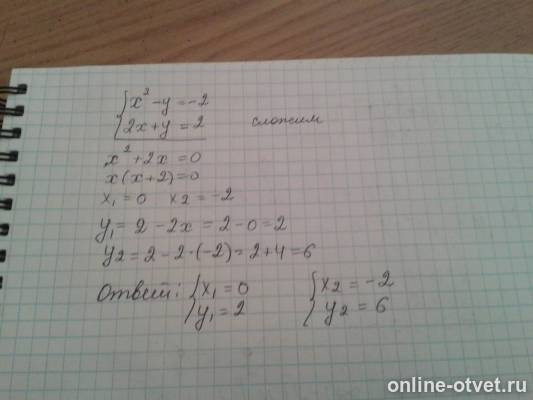 x² - y = -2
2x + y = 2 сложим
x² + 2x = 0
x(x+2) = 0
x₁ = 0 x2 = -2
y₁ = 2 - 2x = 2 - 0 = 2
y2 = 2 - 2·(-2) = 2 + 4 = 6
Ответ: { x₁ = 0 { x2 = -2
y₁ = 2 y2 = 6
online-otvet.ru